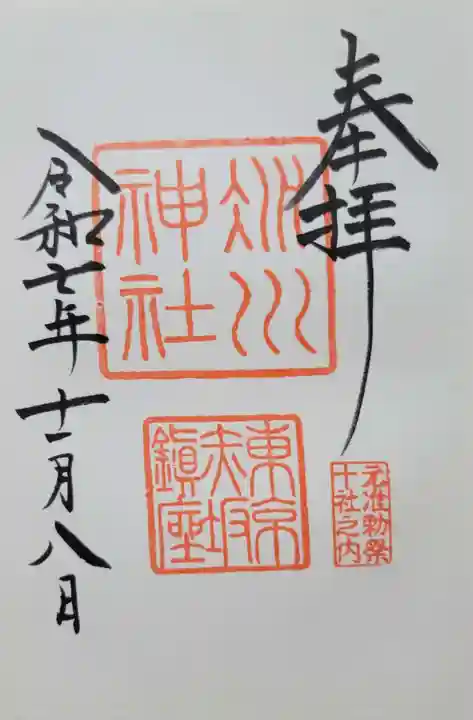 奉拝
氷川
神社
東京
赤坂
鎮座
元准勅祭
十社之内
令和七年十一月八日